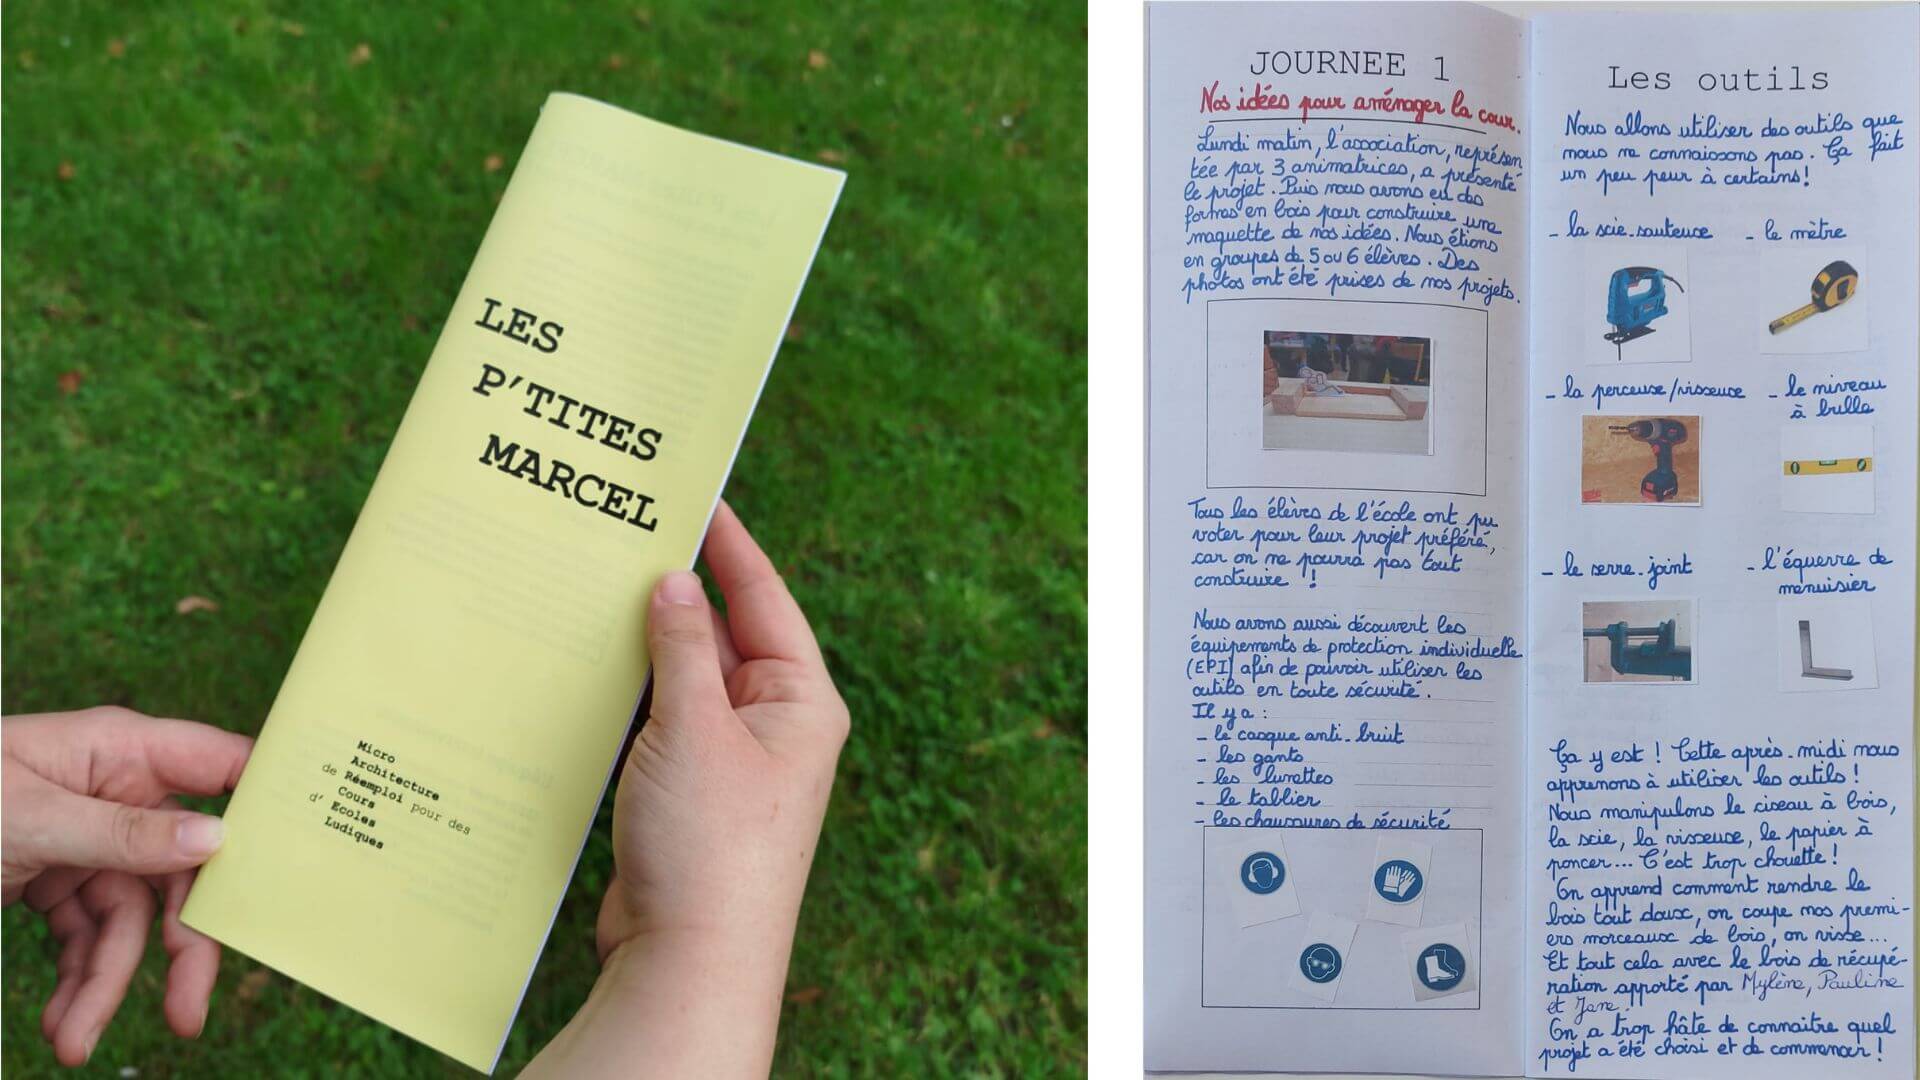 LES
P'TITES
MARCEL
Micro
Architecture
de Réemploi pour des
Cours
d' Ecoles
Ludiques
JOURNEE 1
Nos idées pour aménager la cour.
Lundi matin, l'association, représen
tée par 3 animatrices, a présenté
le projet. Puis nous avons eu des
formes en bois pour construire une
maquette de nos idées. Nous étions
en groupes de 5 ou 6 élèves. Des
photos ont été prises de nos projets.
Tous les élèves de l'école ont pu
voter pour leur projet préféré,
car on ne pourra pas tout
construire !
Nous avons aussi découvert les
équipements de protection individuelle
(EPI) afin de pouvoir utiliser les
outils en toute sécurité.
Il y a :
- le casque anti-bruit
- les gants
- les lunettes
- le tablier
- les chaussures de sécurité
Les outils
Nous allons utiliser des outils que
nous ne connaissons pas. Ça fait
un peu peur à certains !
- la scie-sauteuse - le mètre
- la perceuse/visseuse - le niveau
à bulle
- le serre-joint - l'équerre de
menuisier
Ça y est ! Cette après-midi nous
apprenons à utiliser les outils !
Nous manipulons le ciseau à bois,
la scie, la visseuse, le papier à
poncer... C'est trop chouette !
On apprend comment rendre le
bois tout doux, on coupe nos premi-
ers morceaux de bois, on visse...
Et tout cela avec le bois de récupé-
ration apporté par Mylène, Pauline
et Jane.
On a trop hâte de connaitre quel
projet a été choisi et de commencer !